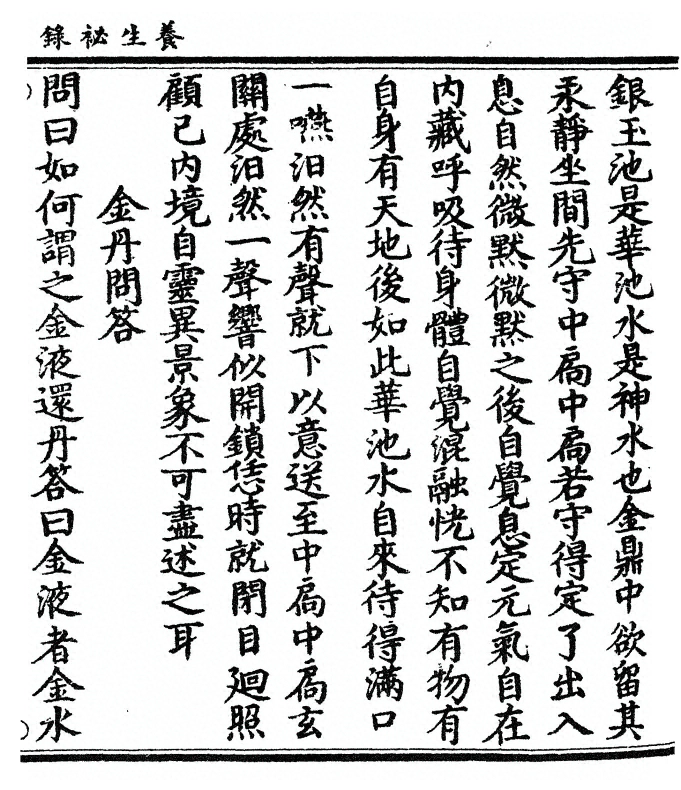 養生祕錄
銀玉池是華池水是神水也金鼎中欲留其
汞靜坐間先守中扄中扄若守得定了出入
息自然微默微默之後自覺息定元氣自在
內藏呼吸待身體自覺混融恍不知有物有
自身有天地後如此華池水自來待得滿口
一嚥汩然有聲就下以意送至中扄中扄玄
關處汩然一聲響似開鎖恁時就閉目廻照
顧已內境自靈異景象不可盡述之耳
金丹問答
問曰如何謂之金液還丹答曰金液者金水